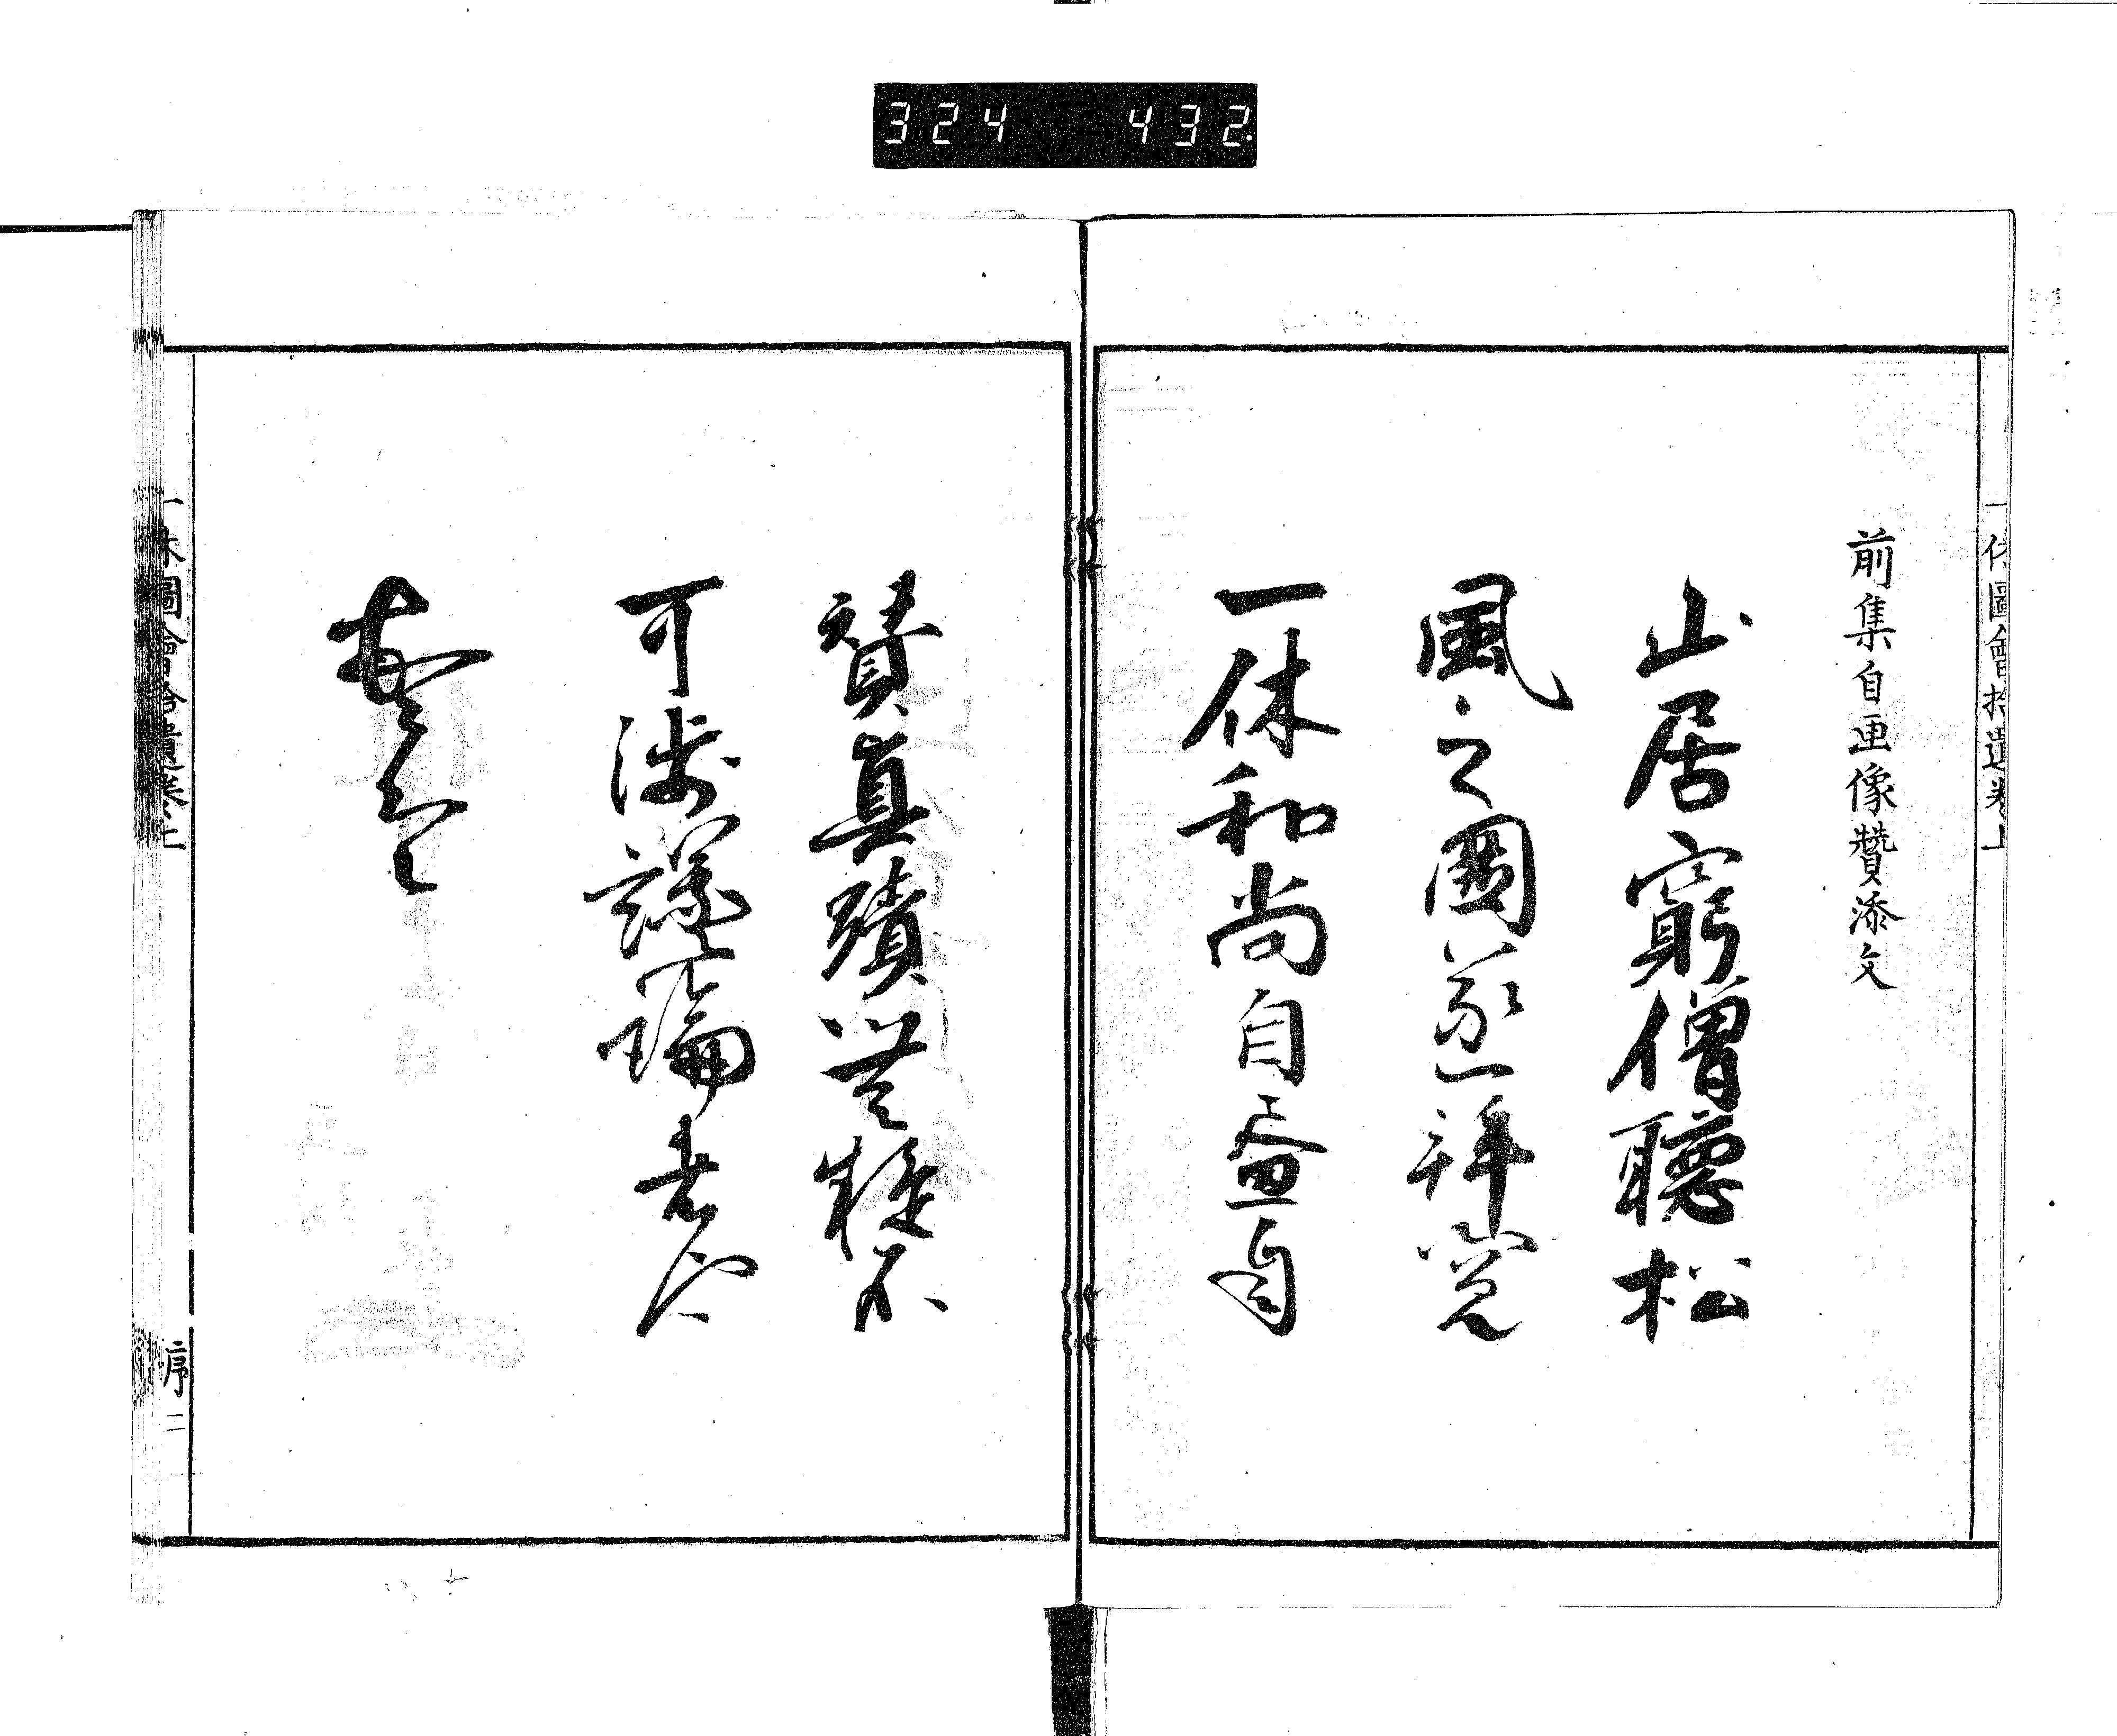 324 432
一休圖會拾遺卷上
前集自画像贊添文
山居窮僧聽松
風之圖並拜覽
一休和尚自畫自
贊真蹟無疑不
可涉議論者
一休圖會拾遺卷上
序 二